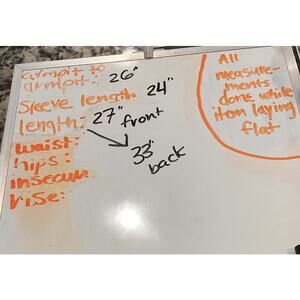 armpit to
armpit: 26"
Sleeve length: 24"
length: 27" front
33" back
waist:
hips:
inseam:
rise:
All
measure-
ments
done while
item laying
flat